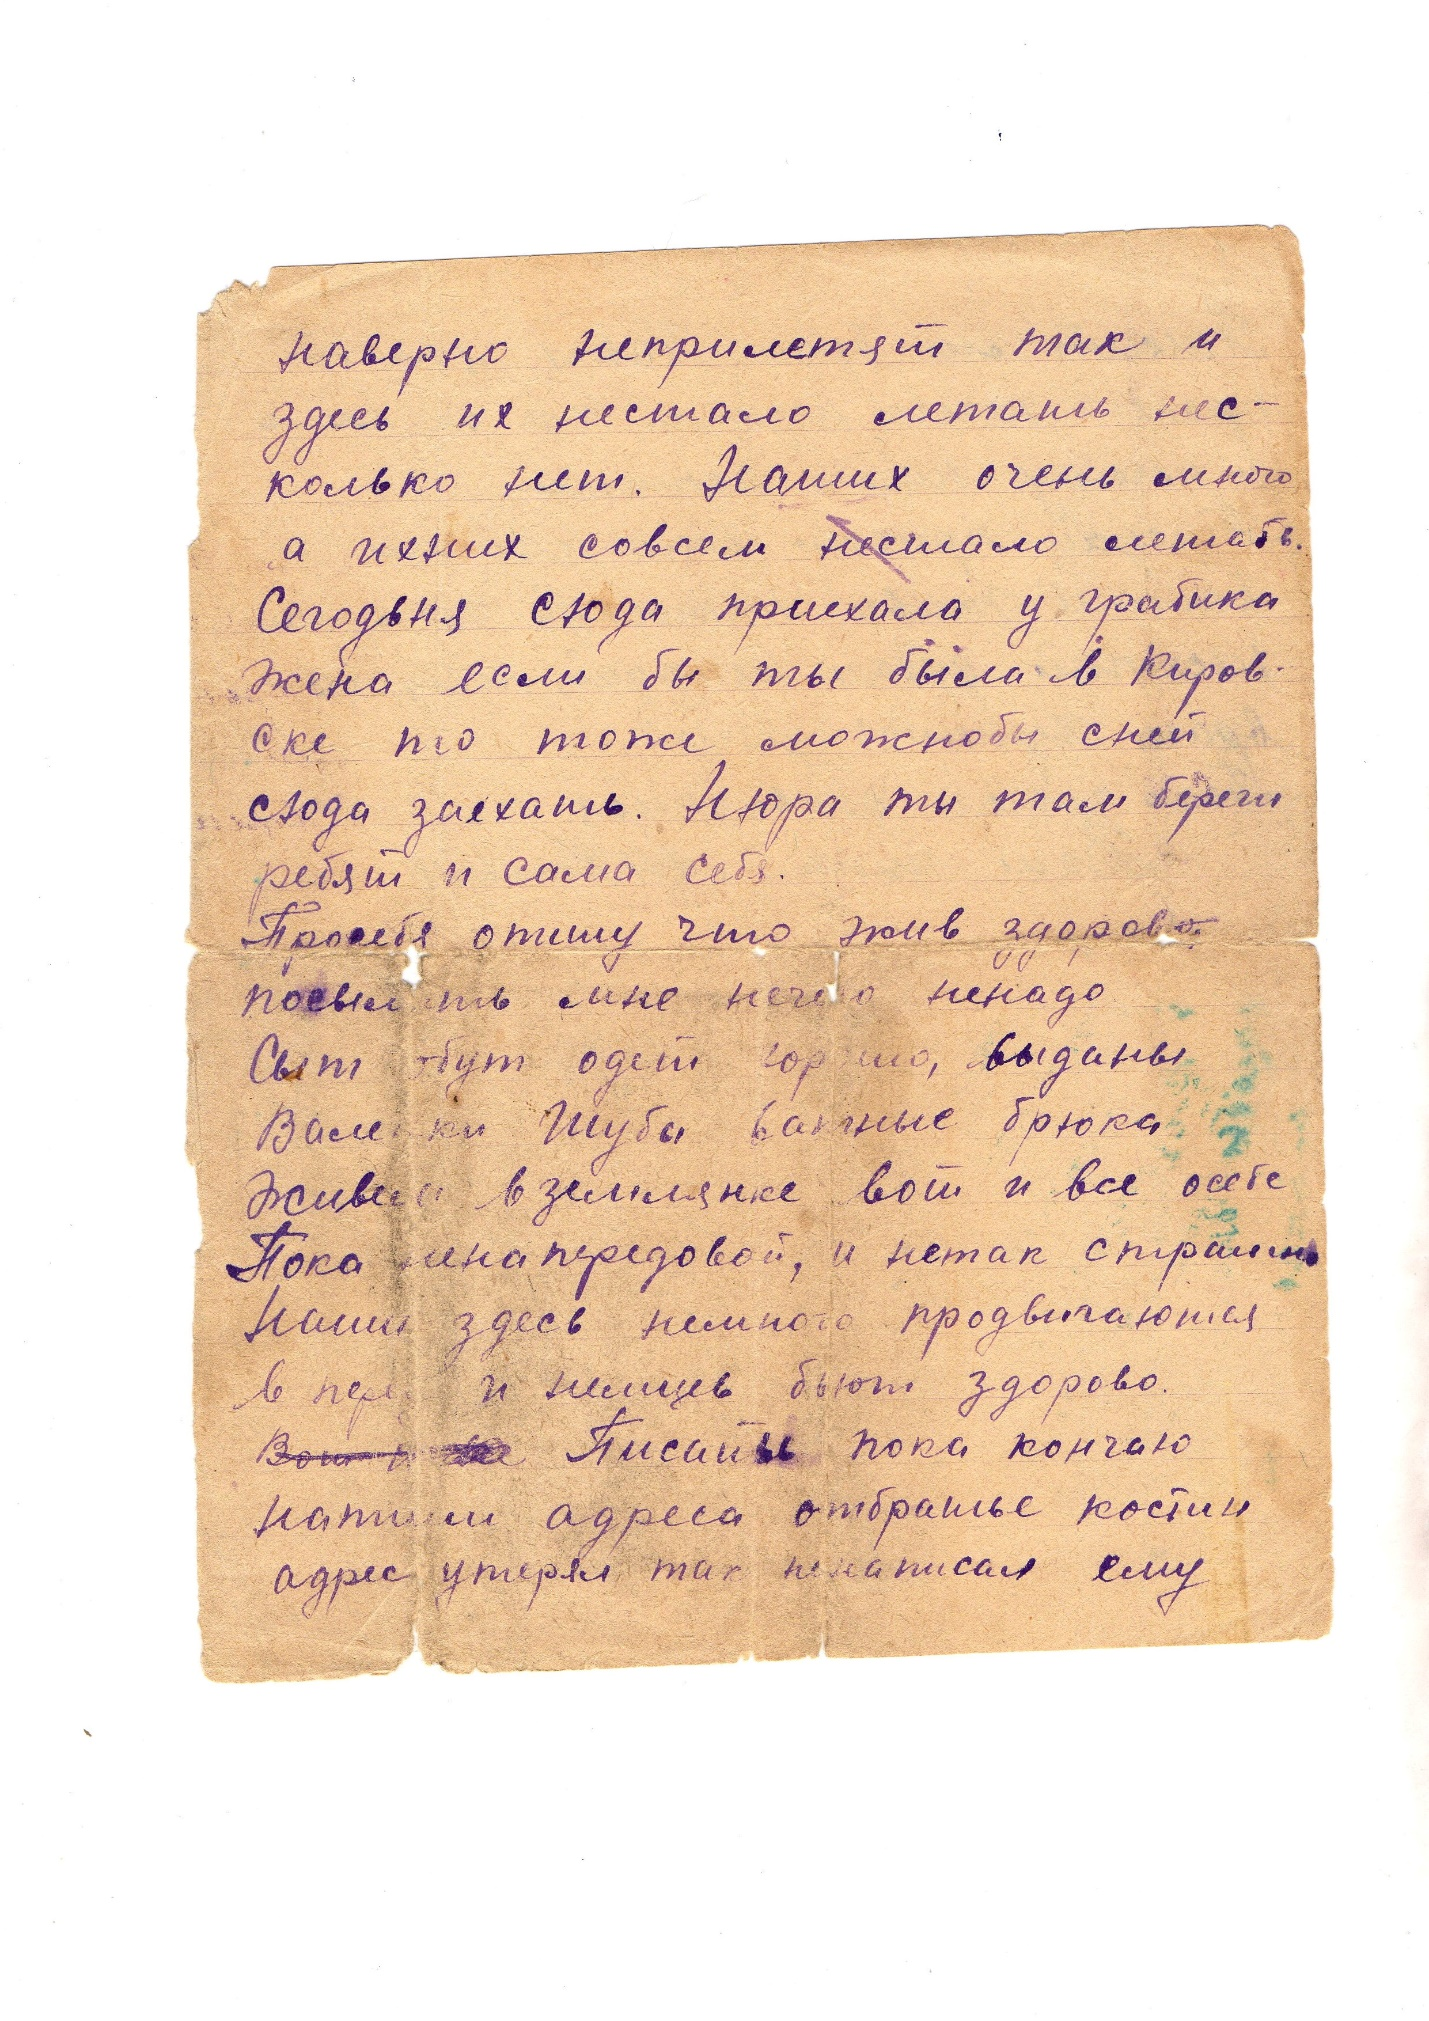 наверно неприлетят так и
здесь их нестало летать нес-
колько нет. Наших очень много
а ихних совсем нестало летать.
Сегодьня сюда приехала у грабика
жена если бы ты была в Киров-
ске то тоже можнобы сней
сюда заехать. Нюра ты там береги
ребят и сама себя.
Просебя опишу что жив здорово
посылать мне нечего ненадо
Сыт обут одет хорошо, выданы
Валенки Шуба ватные брюка
Живем в землянке вот и все осебе
Пока ненапередовой, и нетак страшно
Наши здесь немного продвигаются
в перед и немцев бьют здорово.
Вот и все Писать пока кончаю
напиши адреса отбратье костин
адрес утерял так ненаписал ему